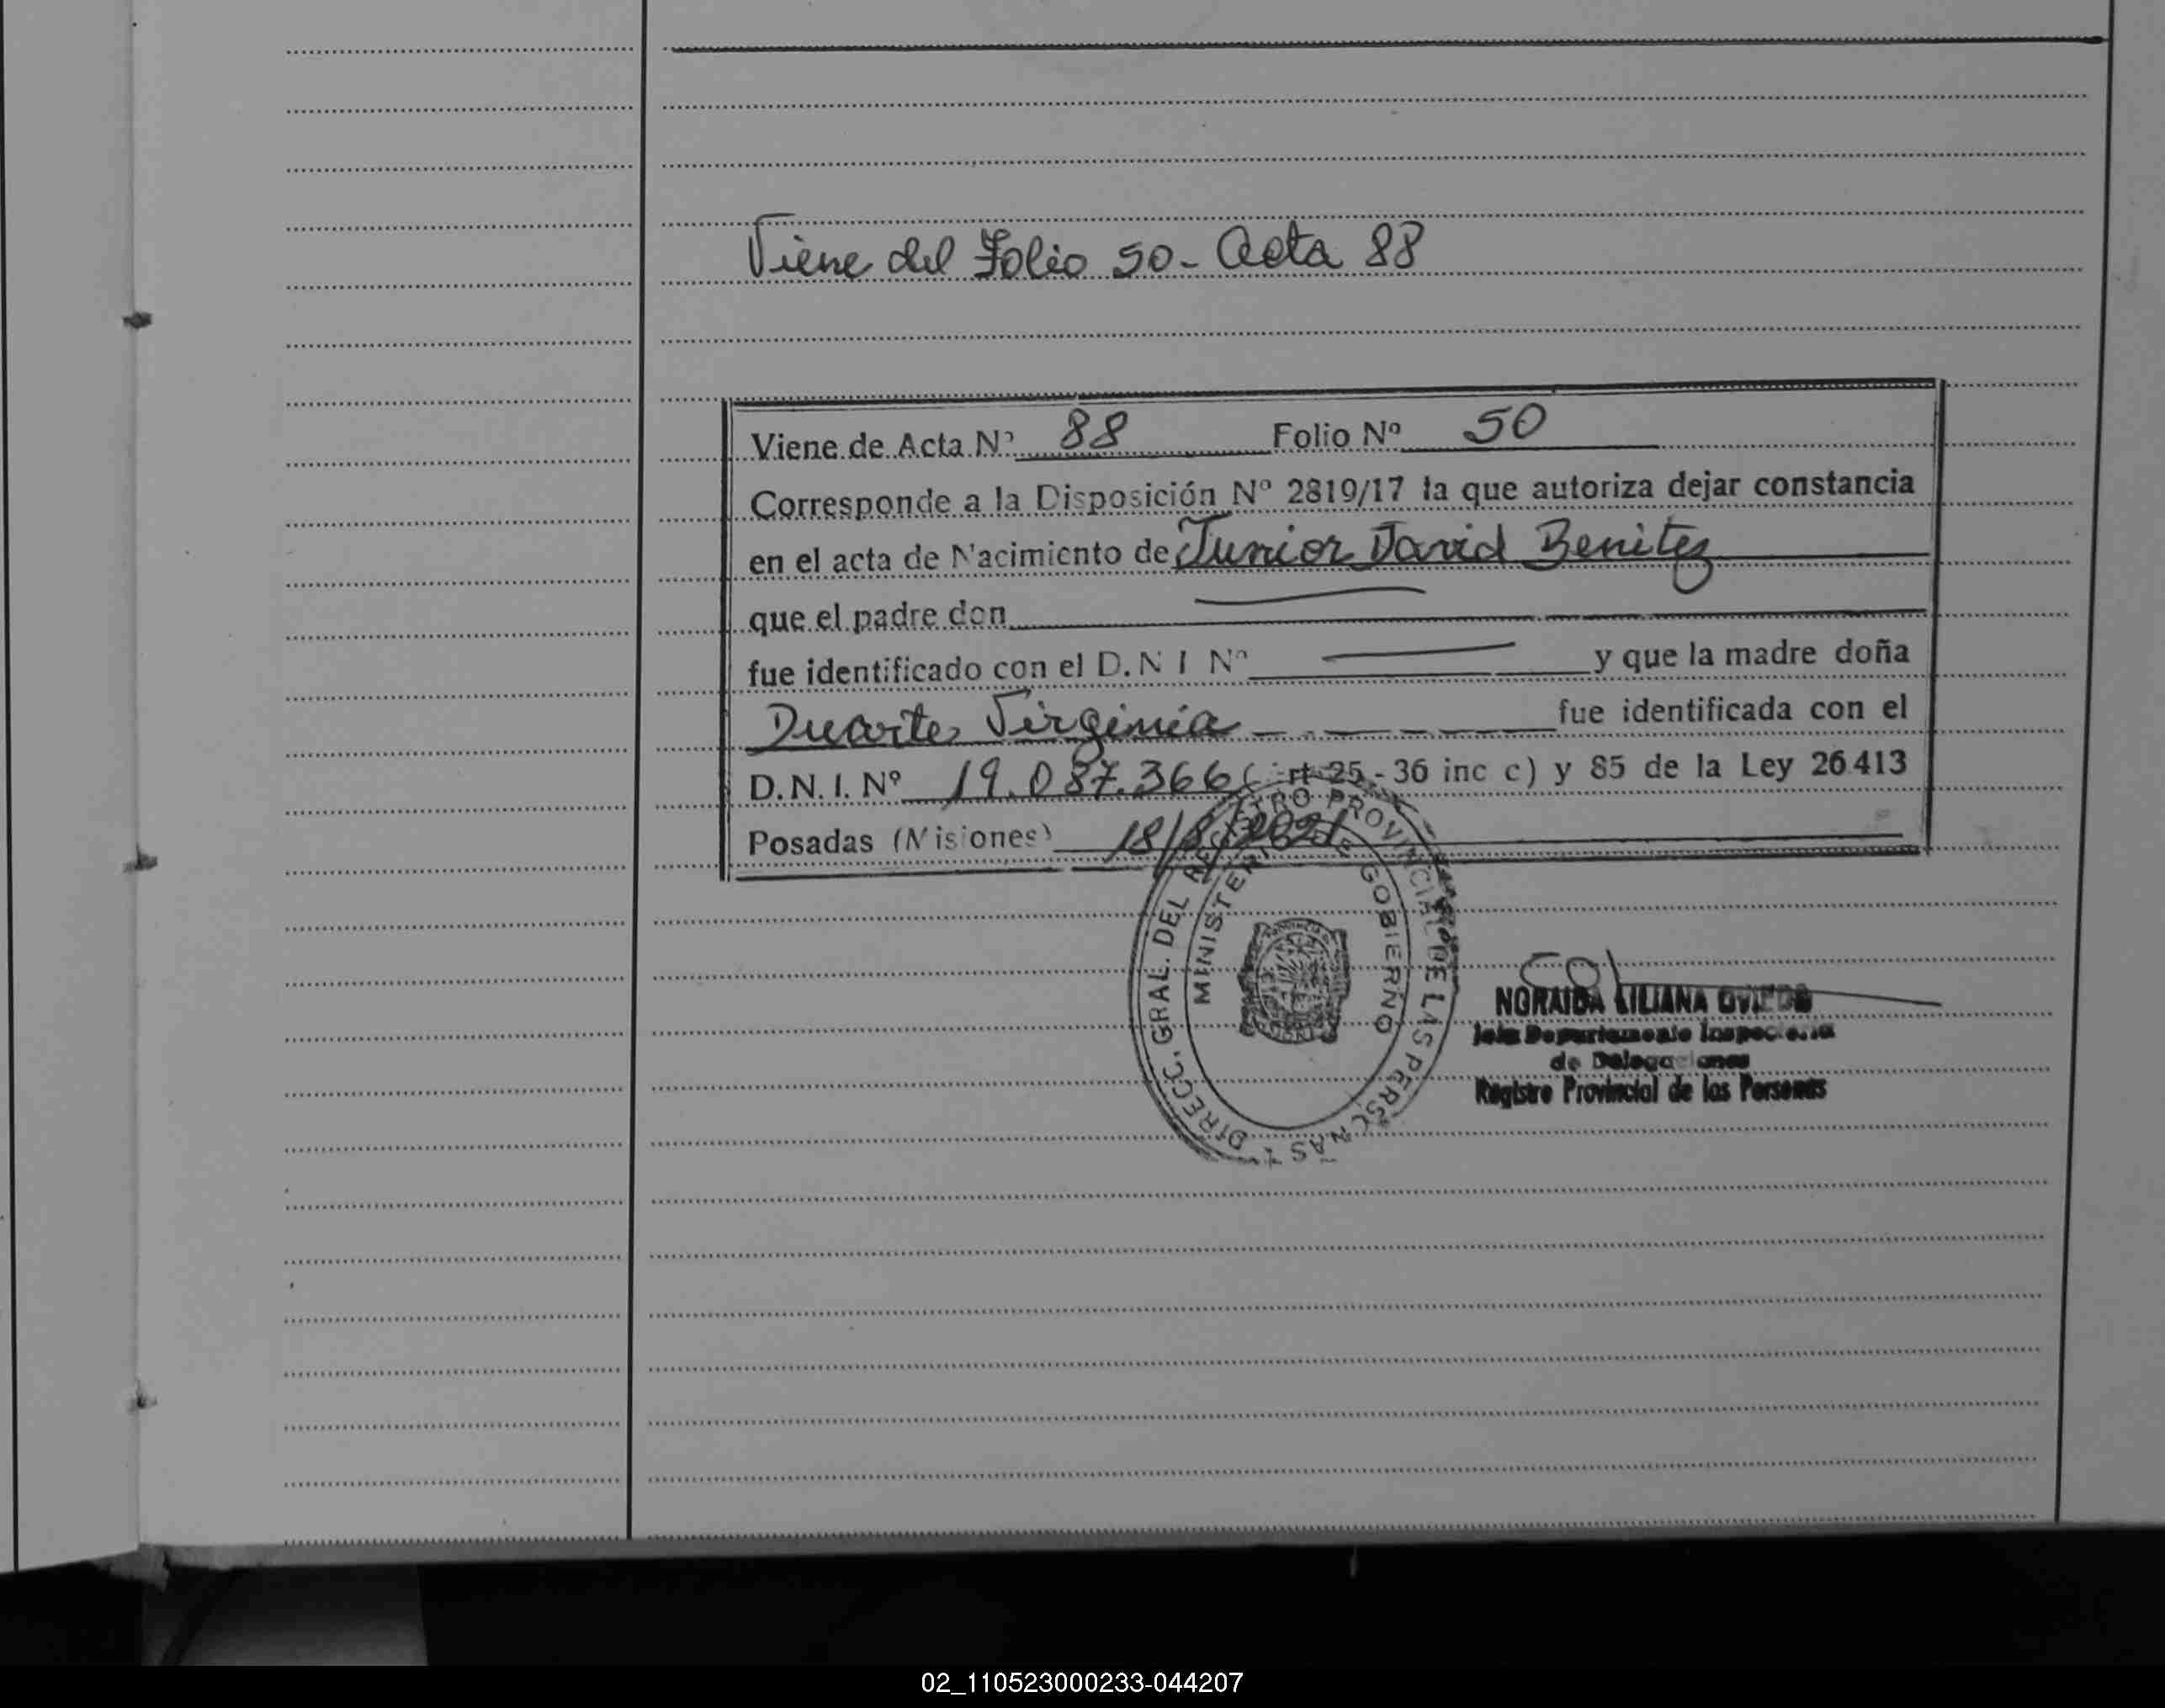 Viene del Folio 50 - Acta 88
Viene de Acta Nº 88 Folio Nº 50
Corresponde a la Disposición Nº 2819/17 la que autoriza dejar constancia
en el acta de Nacimiento de Junior David Benitez
que el padre don
fue identificado con el D.N I Nº y que la madre doña
Duarte, Virginia - - - - fue identificada con el
D.N.I. Nº 19.087.366 (art 25 - 36 inc c) y 85 de la Ley 26.413
Posadas (Misiones) 18/8/2021
DIRECC. GRAL. DEL REGISTRO PROVINCIAL DE LAS PERSONAS
MINISTERIO DE GOBIERNO
NORAIDA LILIANA OVIEDO
Jefa Departamento Inspectoria
de Delegaciones
Registro Provincial de las Personas
02_110523000233-044207